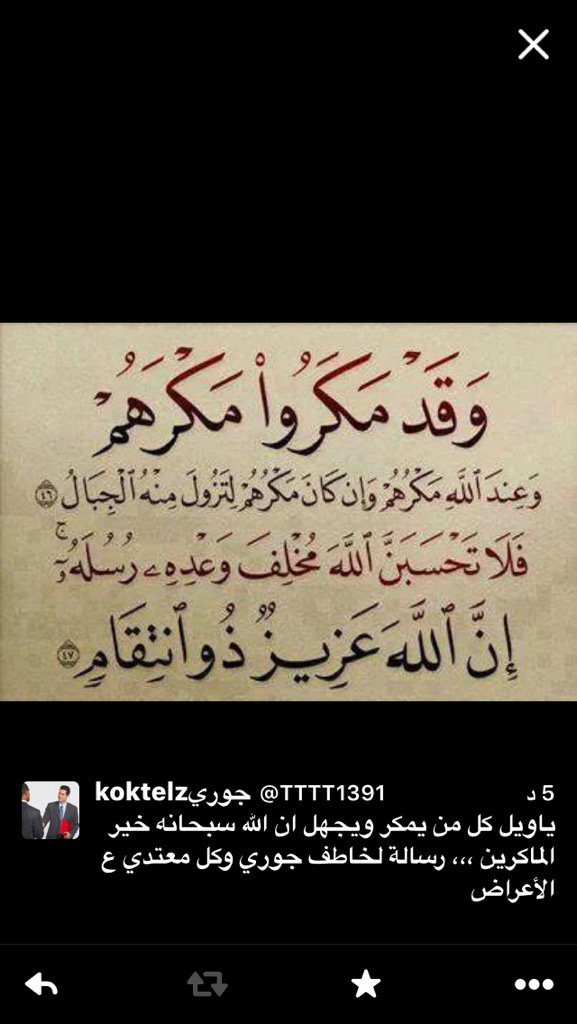 وَقَدْ مَكَرُوا۟ مَكْرَهُمْ
وَعِندَ ٱللَّهِ مَكْرُهُمْ وَإِن كَانَ مَكْرُهُمْ لِتَزُولَ مِنْهُ ٱلْجِبَالُ ٤٦
فَلَا تَحْسَبَنَّ ٱللَّهَ مُخْلِفَ وَعْدِهِۦ رُسُلَهُۥٓ ۚ
إِنَّ ٱللَّهَ عَزِيزٌ ذُو ٱنتِقَامٍ ٤٧
koktelzجوري @TTTT1391 5 د
ياويل كل من يمكر ويجهل ان الله سبحانه خير
الماكرين ،،، رسالة لخاطف جوري وكل معتدي ع
الأعراض